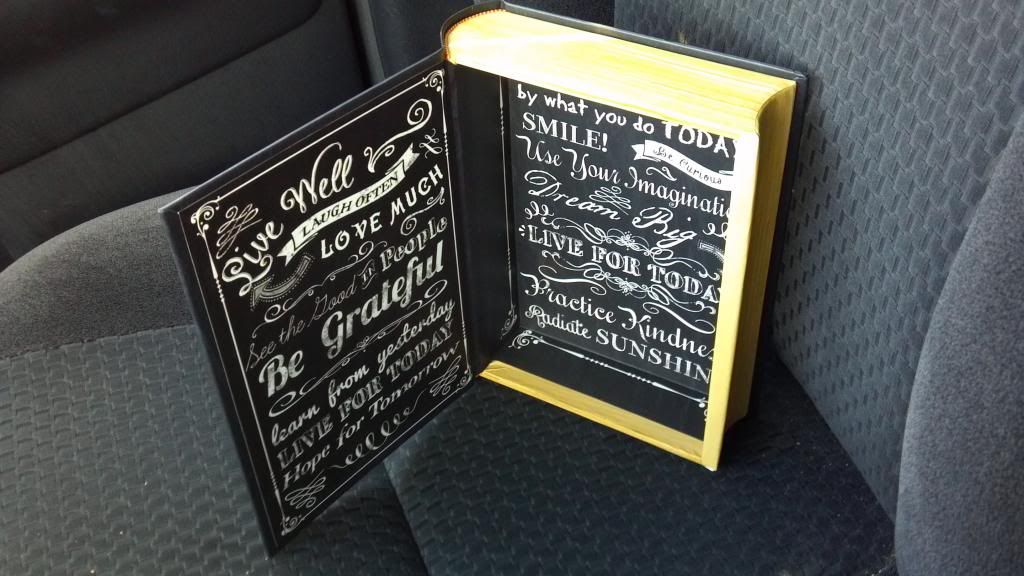 Live Well
LAUGH OFTEN
LOVE MUCH
See the Good in People
Be Grateful
learn from yesterday
LIVE FOR TODAY
Hope for Tomorrow
by what you do TODAY
SMILE!
Be Curious
Use Your Imaginati
Dream Big
LIVE FOR TODA
Practice Kindne
Radiate SUNSHIN